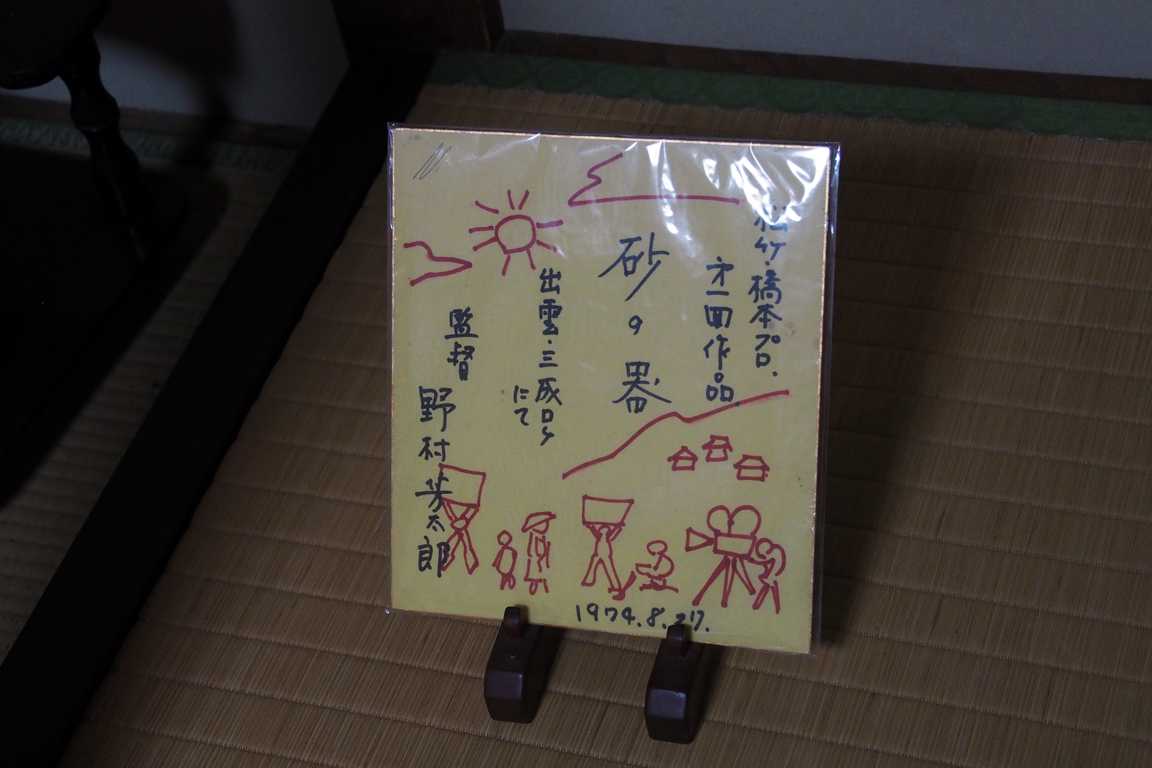 松竹・橋本プロ.
才一回作品
砂の器
出雲・三成ロケ
にて
監督
野村芳太郎
1974.8.27.